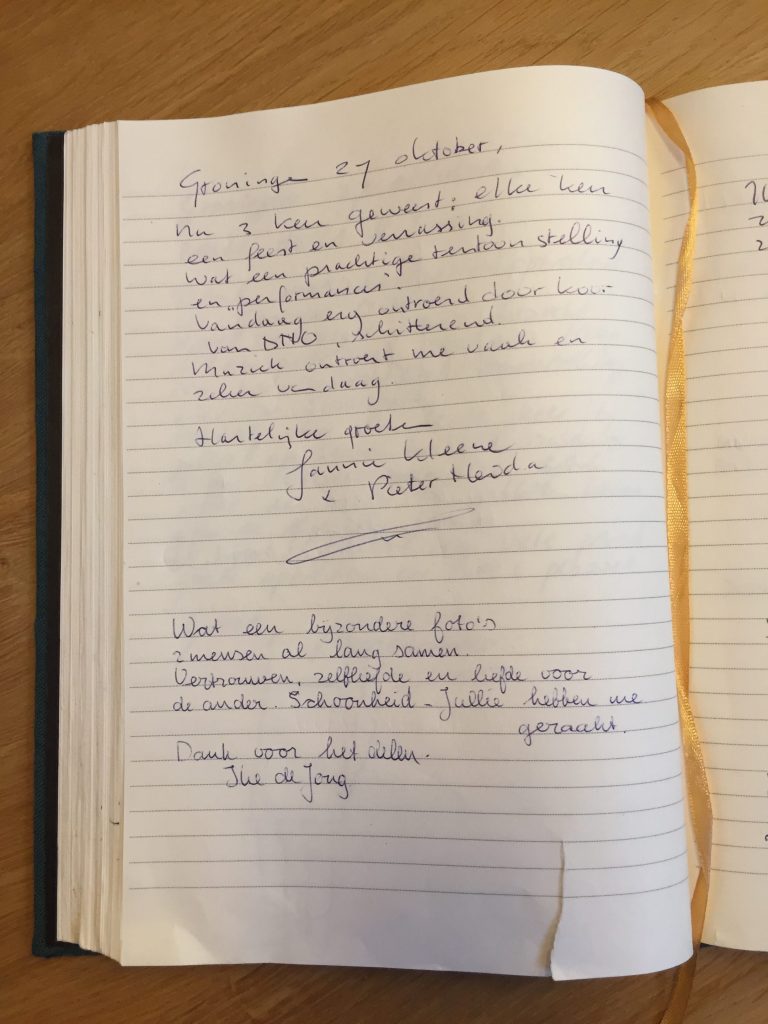 Groningen 27 oktober,
Nu 3 keer geweest; elke keer
een feest en verrassing.
Wat een prachtige tentoonstelling
en „performances".
Vandaag erg ontroerd door koor
van DNO, schitterend.
Muziek ontroert me vaak en
zeker vandaag.
Hartelijke groeten
Kleene
Pieter
Wat een bijzondere foto's
2 mensen al lang samen.
Vertrouwen, zelfliefde en liefde voor
de ander. Schoonheid - Jullie hebben me
geraakt.
Dank voor het delen.
de Jong